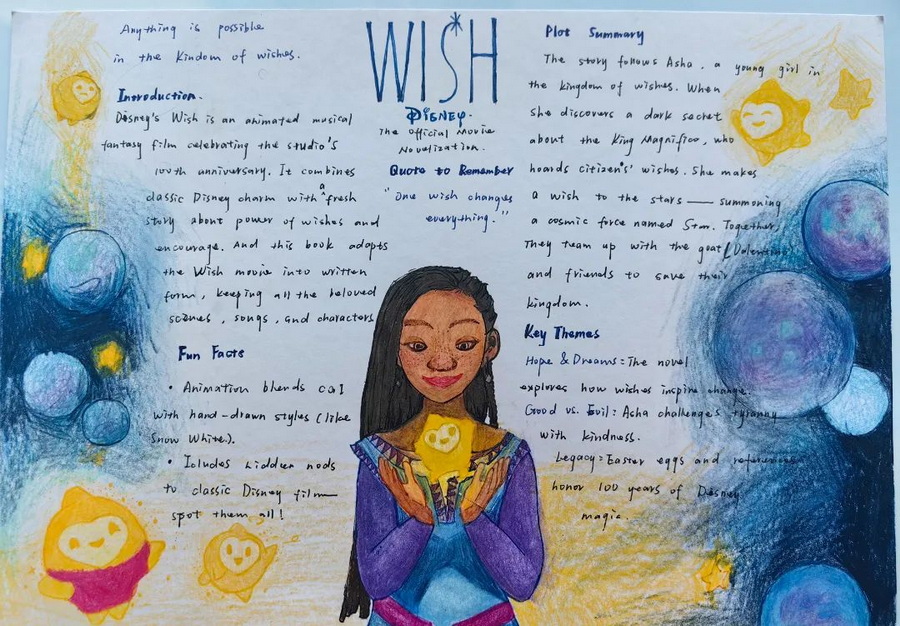 Anything is possible
in the Kindom of wishes.
Inoroduction.
Disney's Wish is an animated musical
fantasy film celebrating the studio's
100th anniversary. It combines
classic Disney charm with a fresh
story about power of wishes and
encourage. And this book adapts
the Wish movie into written
form, keeping all the beloved
scenes, songs, and charactors
Fun Facts
• Animation blends CGI
with hand-drawn styles (like
Snow White).
• Icludes hidden nods
to classic Disney film—
spot them all!
WISH
Disney.
The official Movie
Novelization.
Quote to Remember
"One wish changes
everything."
Plot Summary
The story follows Asha, a young girl in
the kingdom of wishes. When
she discovers a dark secret
about the King Magnifico, who
hoards citizens' wishes. She makes
a wish to the stars — summoning
a cosmic force named Star. Together,
They team up with the goat (Valentino
and friends to save their
kingdom.
Key Themes
Hope & Dreams: The novel
explores how wishes inspire change.
Good vs. Evil: Asha challenges tyranny
with kindness.
Legacy: Easter eggs and references
honor 100 years of Disney
magic.